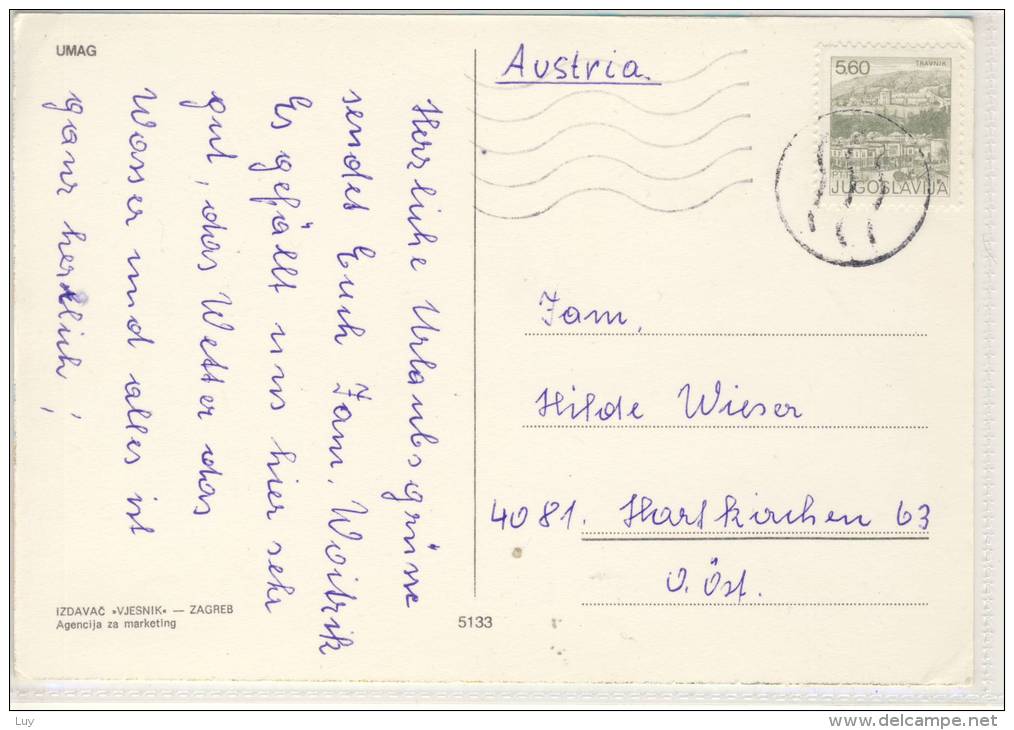 UMAG
Herzliche Urlaubsgrüsse
sendet Euch Fam. Woitzik
Es gefällt uns hier sehr
gut, das Wetter das
Wasser und alles ist
ganz herrlich!
IZDAVAČ »VJESNIK« — ZAGREB
Agencija za marketing
5133
Austria.
5,60
TRAVNIK
PTT
JUGOSLAVIJA
Fam.
Hilde Wieser
4081. Hartkirchen 63
O.Öst.
Luy
www.delcampe.net